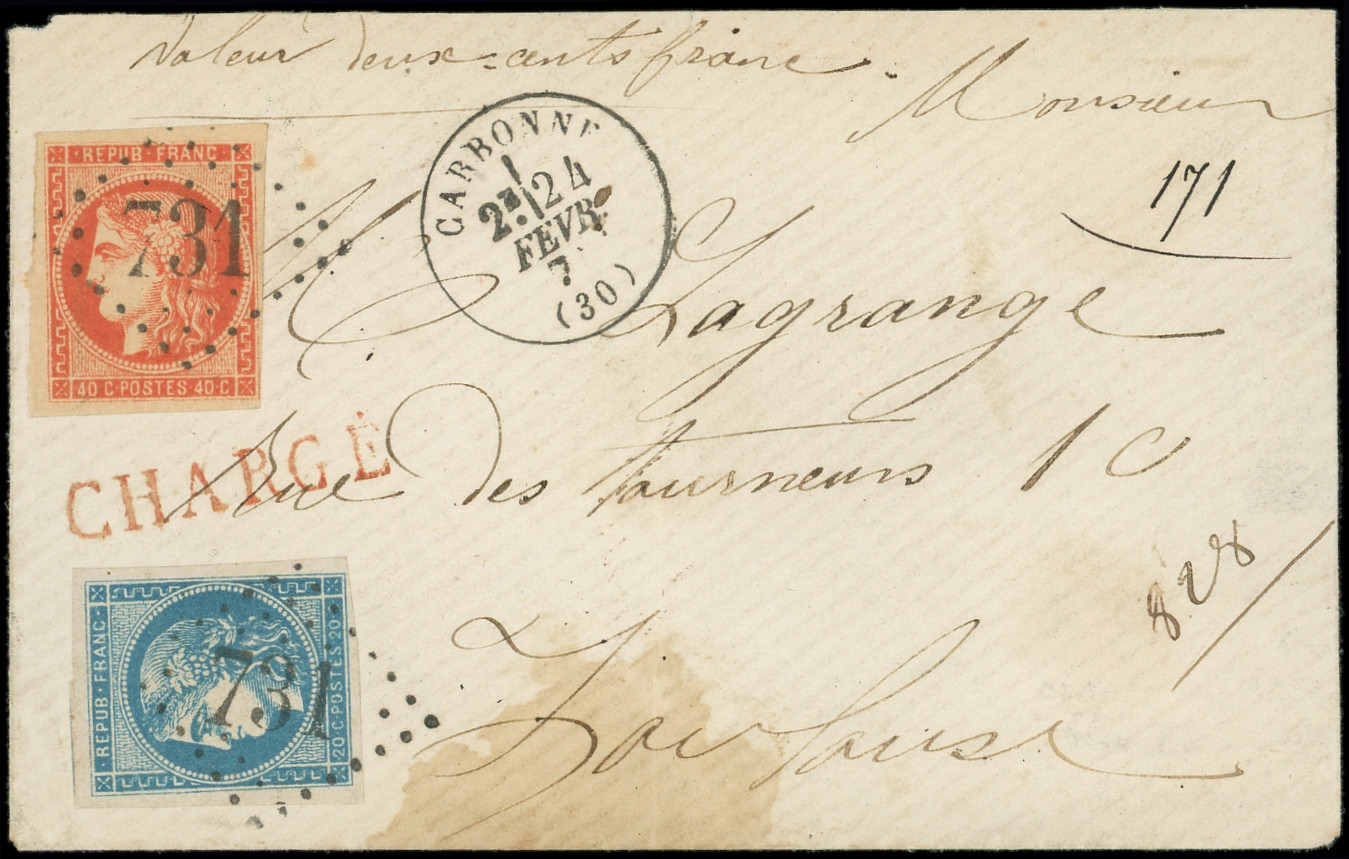 Valeur deux=cents franc
Monsieur
REPUB·FRANC
731
40·C·POSTES·40·C
CARBONNE
2E 24
FEVR.
7
(30)
171
M Lagrange
CHARGÉ
Rue des tourneurs 1 C
REPUB·FRANC
731
20·C·POSTES·20·C
828
Toulouse